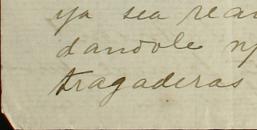 ya sea rea
dandole
tragaderas